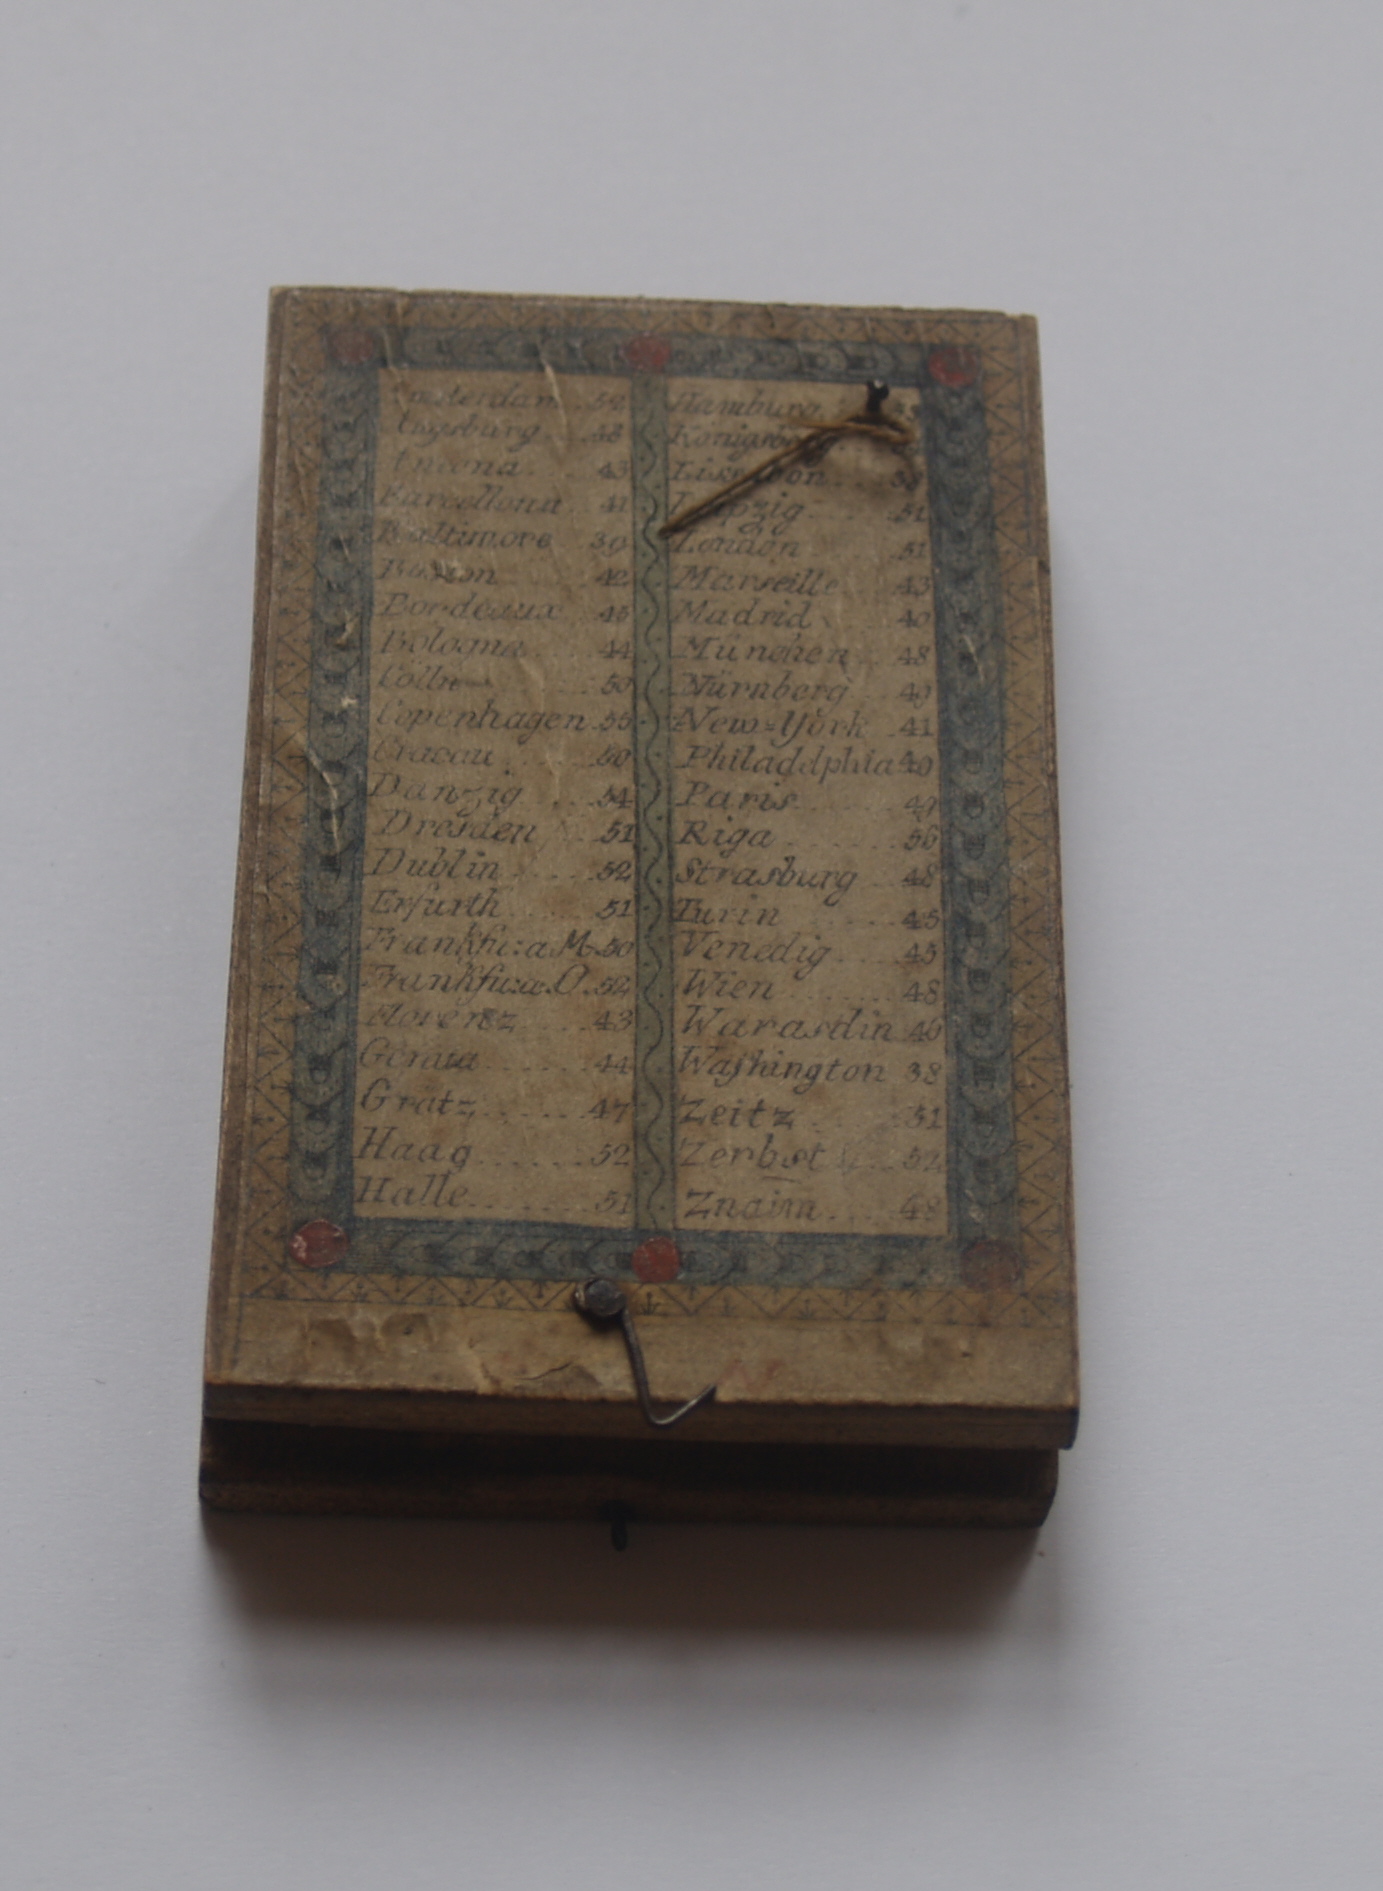 Amsterdam . 52
Augsburg .... 48
Ancona ... 43
Barcellona .. 41
Baltimore 39
Boston ... 42
Bordeaux 45
Bologna ... 44
Cölln ... 50
Copenhagen . 55
Cracau ... 50
Danzig .... 54
Dresden ... 51
Dublin ..... 52
Erfurth ..... 51
Frankfu: a M. 50
Frankfu: a. O. 52
Florenz .... 43
Genua ..... 44
Gratz ....... 47
Haag ........ 52
Halle ........ 51
Hamburg
Lissabon
Leipzig ..... 51
London ..... 51
Marseille 43
Madrid ... 40
München .. 48
Nürnberg .. 49
New=York 41
Philadelphia 40
Paris ...... 49
Riga ...... 56
Strasburg . 48
Turin ...... 45
Venedig .... 45
Wien ...... 48
Warasdin 46
Washington 38
Zeitz ...... 51
Zerbst .... 52
Znaim .... 48